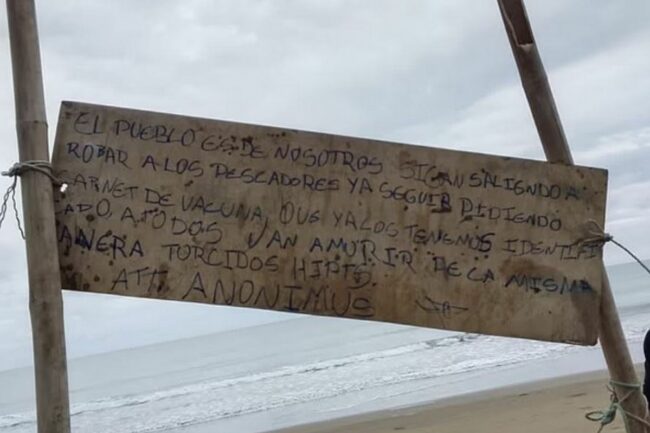 EL PUEBLO ES DE NOSOTROS SIGAN SALIENDO A
ROBAR A LOS PESCADORES YA SEGUIR DIDIENDO
CARNET DE VACUNA, QUE YA LOS TENEMOS IDENTIFI
ADO, A TODOS VAN AMURIR DE LA MISMA
ANERA TORCIDOS HIPTS.
ATT. ANONIMUS